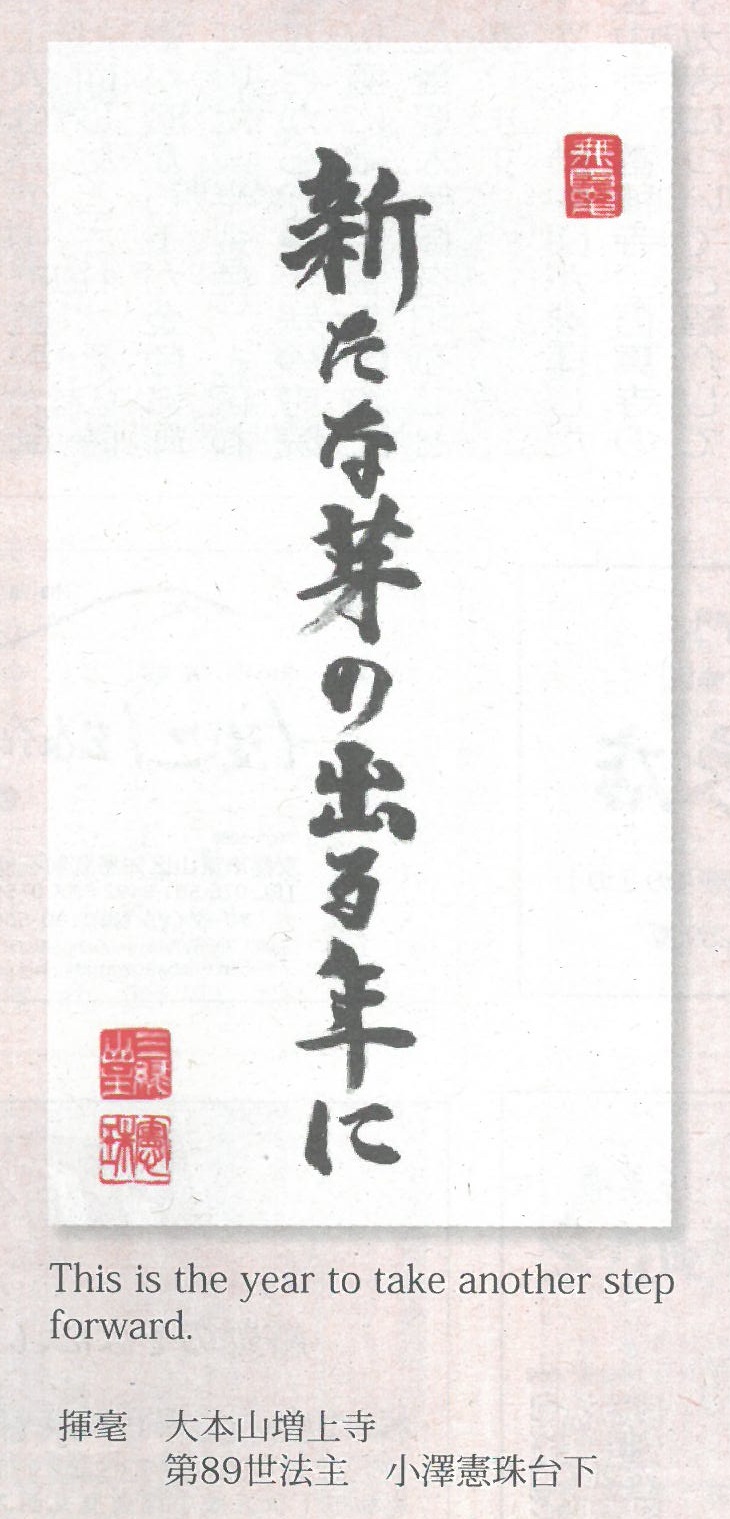 新たな芽の出る年に
憲珠
This is the year to take another step
forward.
揮毫　大本山増上寺
第89世法主　小澤憲珠台下